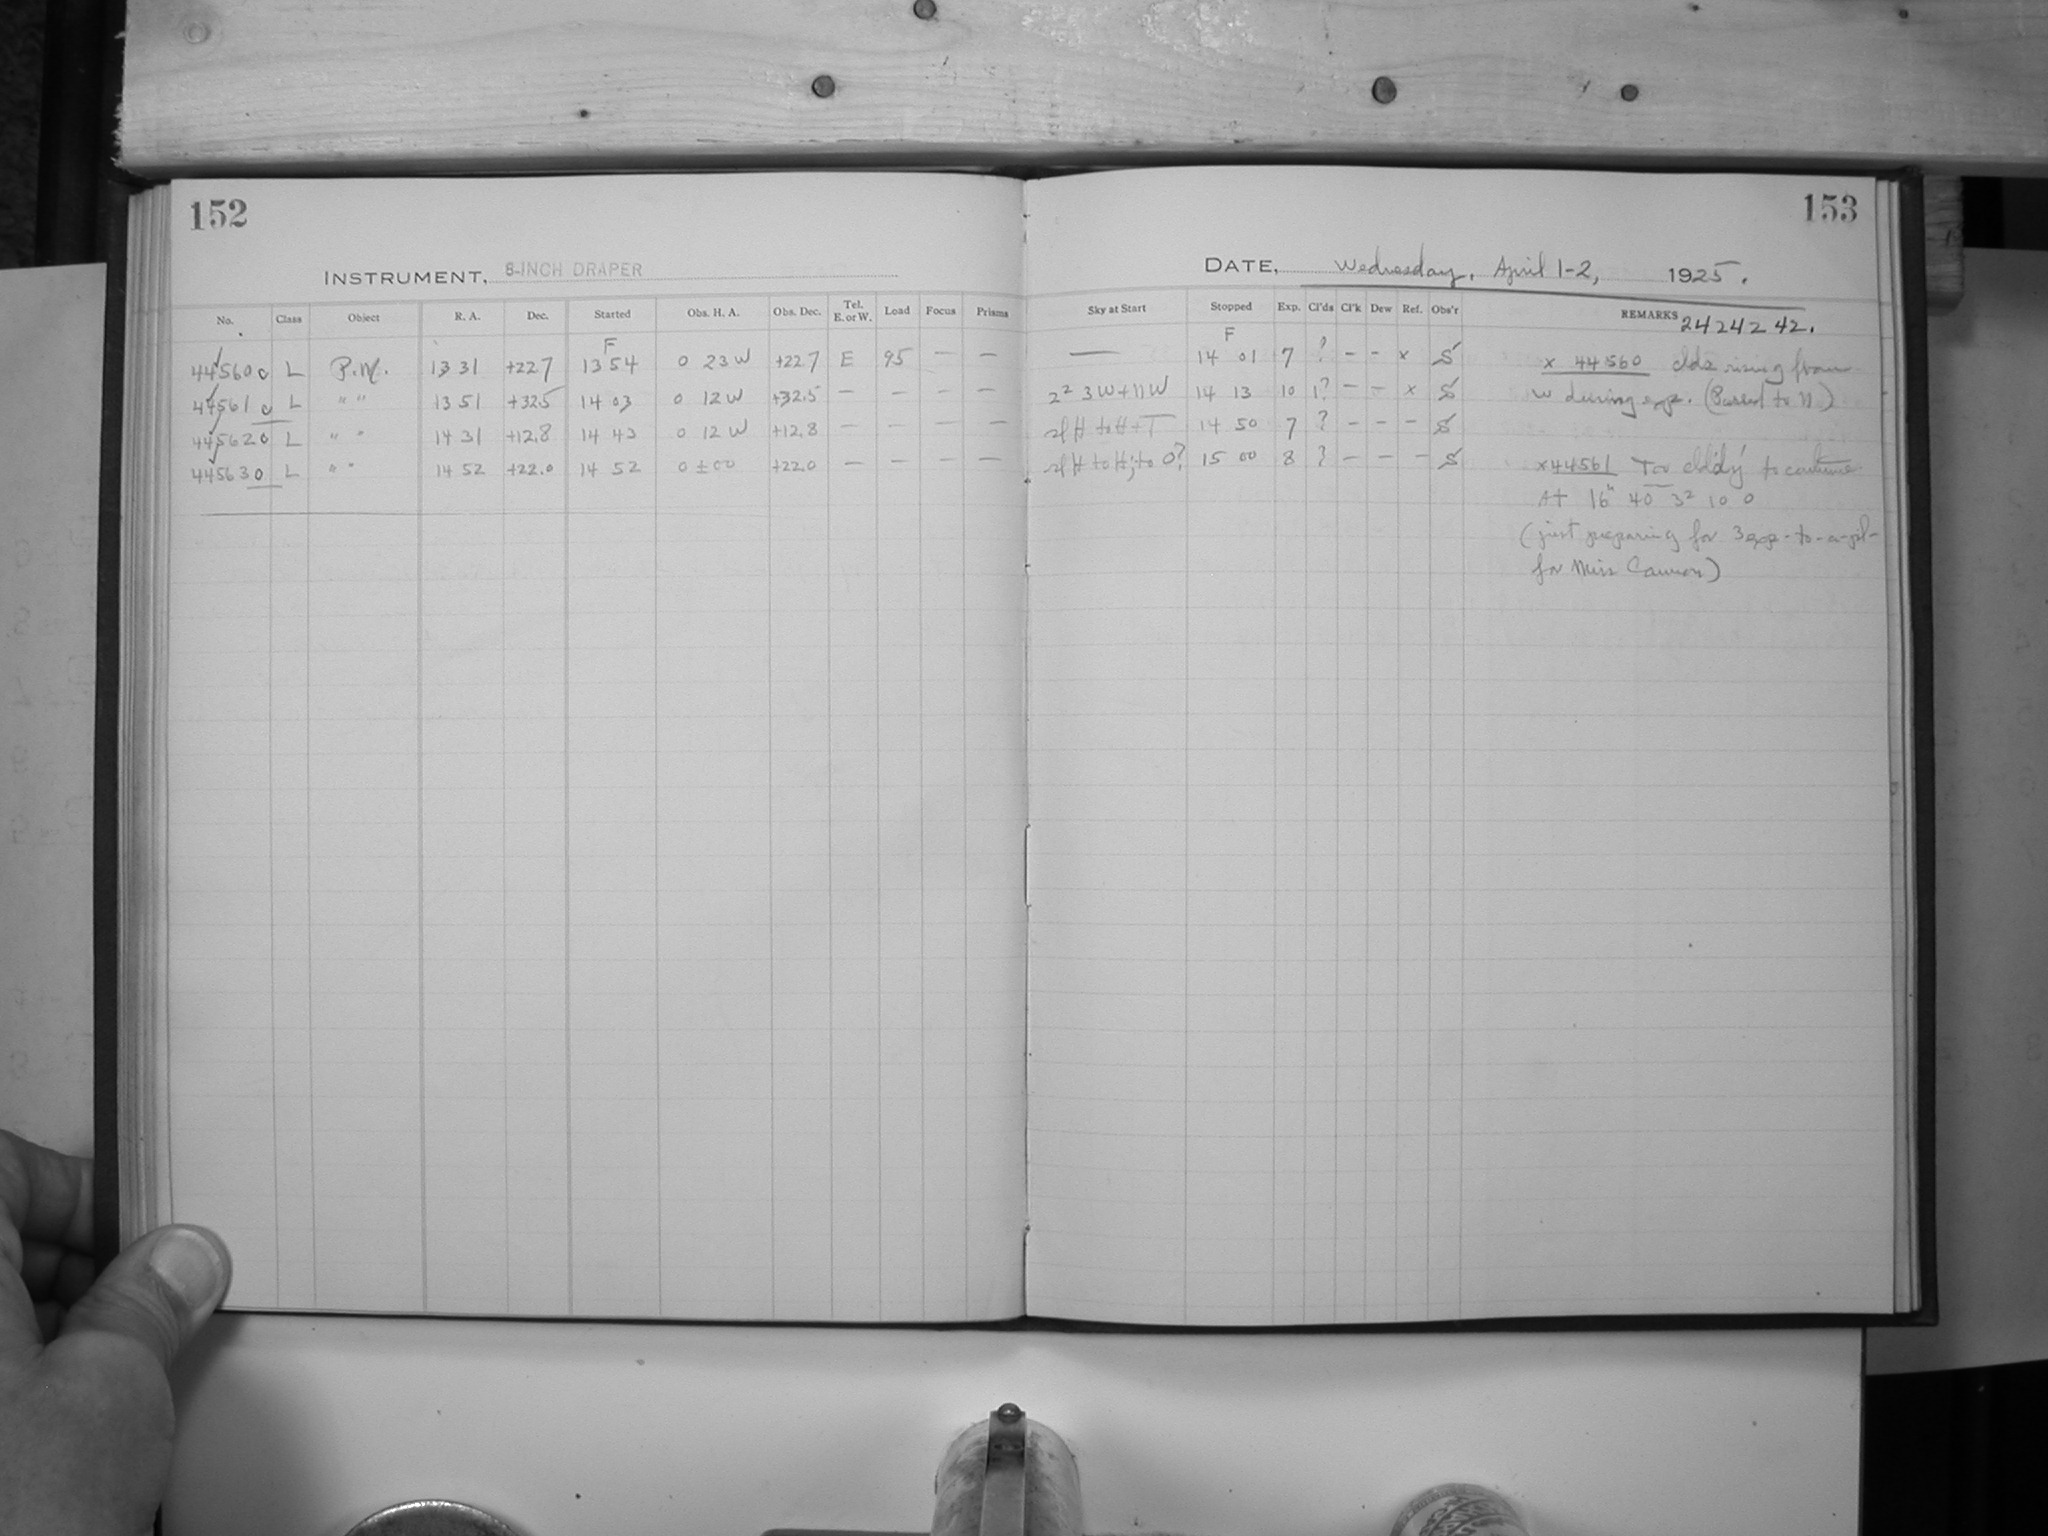 152
INSTRUMENT, 8-INCH DRAPER
No. Class Object R. A. Dec. Started Obs. H. A. Obs. Dec. Tel. E. or W. Load Focus Prisms
F
44560 0 L P.M. 13 31 +22.7 13 54 0 23 W +22.7 E 95 — —
44561 0 L " " 13 51 +32.5 14 03 0 12 W +32.5 — — — —
44562 0 L " " 14 31 +12.8 14 43 0 12 W +12.8 — — — —
44563 0 L " " 14 52 +22.0 14 52 0 ± 00 +22.0 — — — —
153
DATE, Wednesday, April 1-2, 1925.
Sky at Start Stopped Exp. Cl'ds Cl'k Dew Ref. Obs'r REMARKS 2424242.
F
— 14 01 7 ? – – x S
2² 3W + 11W 14 13 10 1? – – x S
H to H + T 14 50 7 ? – – – S
H to H; to 0? 15 00 8 ? – – – S
x 44560 clds rising from
W during exp. (Passed to N)
x 44561 Too cld'dy to continue
At 16h 40 3² 10 0
(just preparing for 3 exp-to-a-pl-
for Miss Cannon)